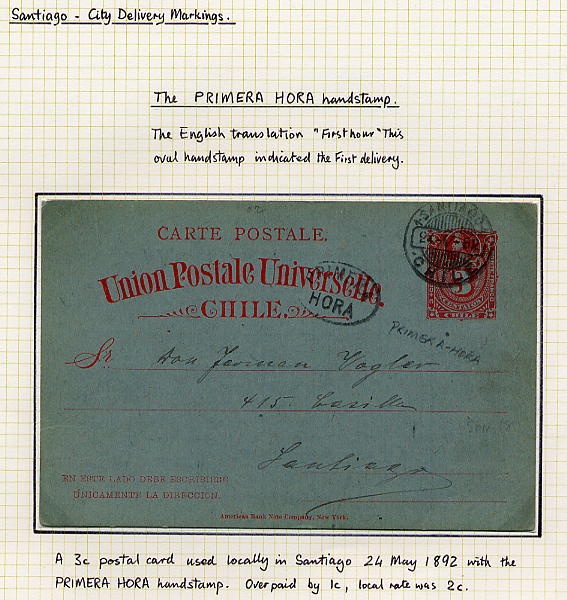 Santiago - City Delivery Markings.
The PRIMERA HORA handstamp.
The English translation "First hour" This
oval handstamp indicated the First delivery.
SANTIAGO
CHILE
CARTE POSTALE.
Union Postale Universelle.
CHILE.
PRIMERA
HORA
3
CENTAVOS
CHILE
PRIMERA-HORA
Sr. Don German Vogler
415. Casilla
Santiago
EN ESTE LADO DEBE ESCRIBIRSE
ÚNICAMENTE LA DIRECCION.
American Bank Note Company, New York.
A 3c postal card used locally in Santiago 24 May 1892 with the
PRIMERA HORA handstamp. Overpaid by 1c, local rate was 2c.